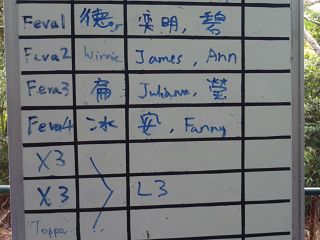 Feva1 德 奕明, 碧
Feva2 Winnie James, Ann
Feva3 扁 Juliana, 瑩
Feva4 冰 安, Fanny
X3
X3 L3
Topper